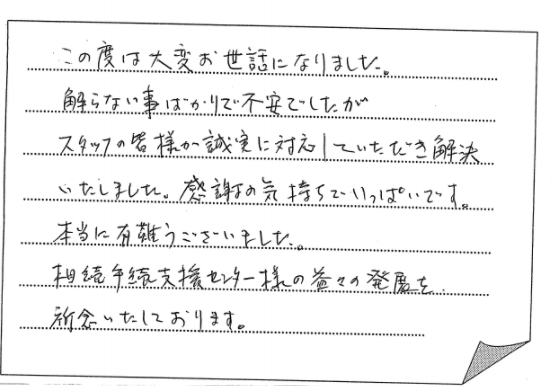 この度は大変お世話になりました。
解らない事ばかりで不安でしたが
スタッフの皆様が誠実に対応していただき解決
いたしました。感謝の気持ちでいっぱいです。
本当に有難うございました。
相続手続支援センター様の益々の発展を
祈念いたしております。